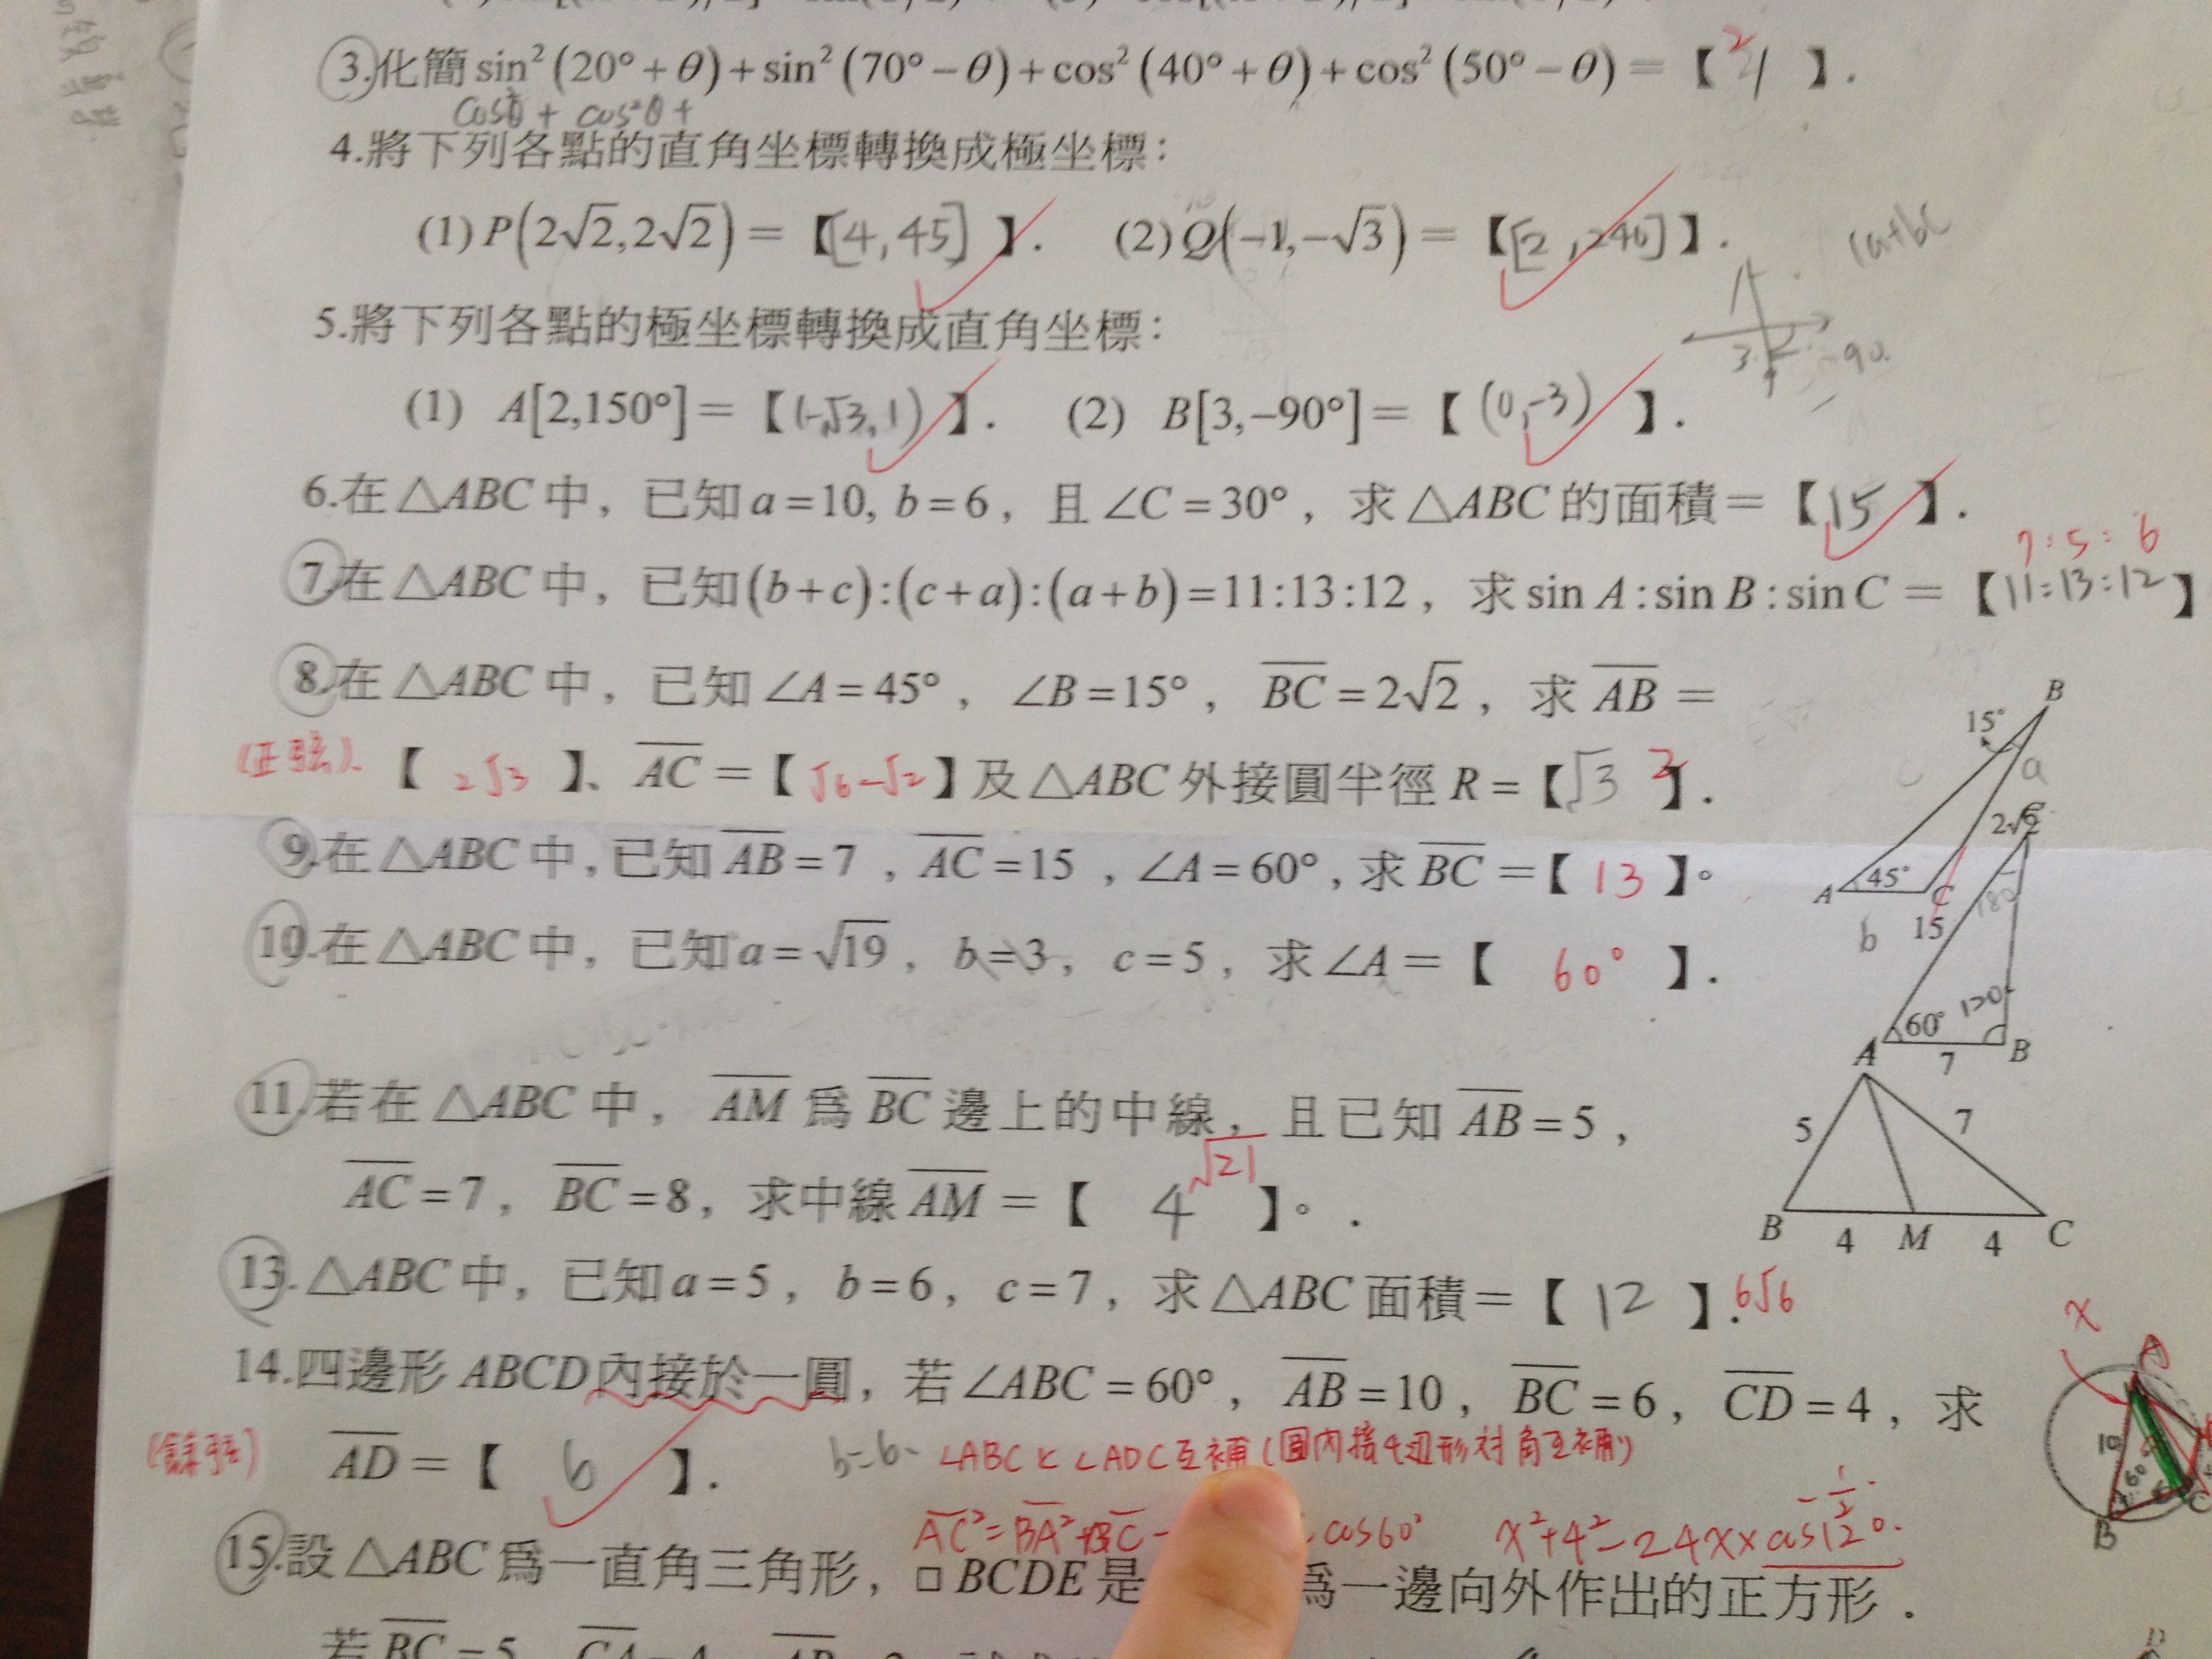 3.化簡 sin²(20°+θ)+sin²(70°−θ)+cos²(40°+θ)+cos²(50°−θ)=【 2 1 】.
cos²θ + cos²θ +
4.將下列各點的直角坐標轉換成極坐標:
(1) P(2√2,2√2)=【[4,45]】. (2) Q(−1,−√3)=【[2,240]】.
5.將下列各點的極坐標轉換成直角坐標:
3 -90
(1) A[2,150°]=【(-√3,1)】. (2) B[3,−90°]=【(0,-3)】.
6.在△ABC中，已知a=10, b=6，且∠C=30°，求△ABC的面積=【15】.
7:5:6
7.在△ABC中，已知(b+c):(c+a):(a+b)=11:13:12，求sin A:sin B:sin C=【11:13:12】
8.在△ABC中，已知∠A=45°，∠B=15°，BC=2√2，求AB=
(正弦)、【 2√3 】、AC=【√6-√2】及△ABC外接圓半徑R=【√3 2】.
B 15° a 2√2 A 45° C b
9.在△ABC中,已知AB=7，AC=15，∠A=60°,求BC=【 13 】。
10.在△ABC中，已知a=√19，b=3，c=5，求∠A=【 60° 】.
15 60° 120 A 7 B
11.若在△ABC中，AM為BC邊上的中線，且已知AB=5，
AC=7，BC=8，求中線AM=【 4 √21 】。.
5 7 B 4 M 4 C
13.△ABC中，已知a=5，b=6，c=7，求△ABC面積=【 12 】. 6√6
14.四邊形ABCD內接於一圓，若∠ABC=60°，AB=10，BC=6，CD=4，求
(餘弦) AD=【 6 】. b=6- ∠ABC ∠ADC互補(圓內接4边形对角互補)
x A 10 60 B C
AC²=BA²+BC - cos60° x²+4²-24x×cos120. -1/2
15.設△ABC為一直角三角形，□BCDE是 為一邊向外作出的正方形.
若BC=5，CA=4，AB